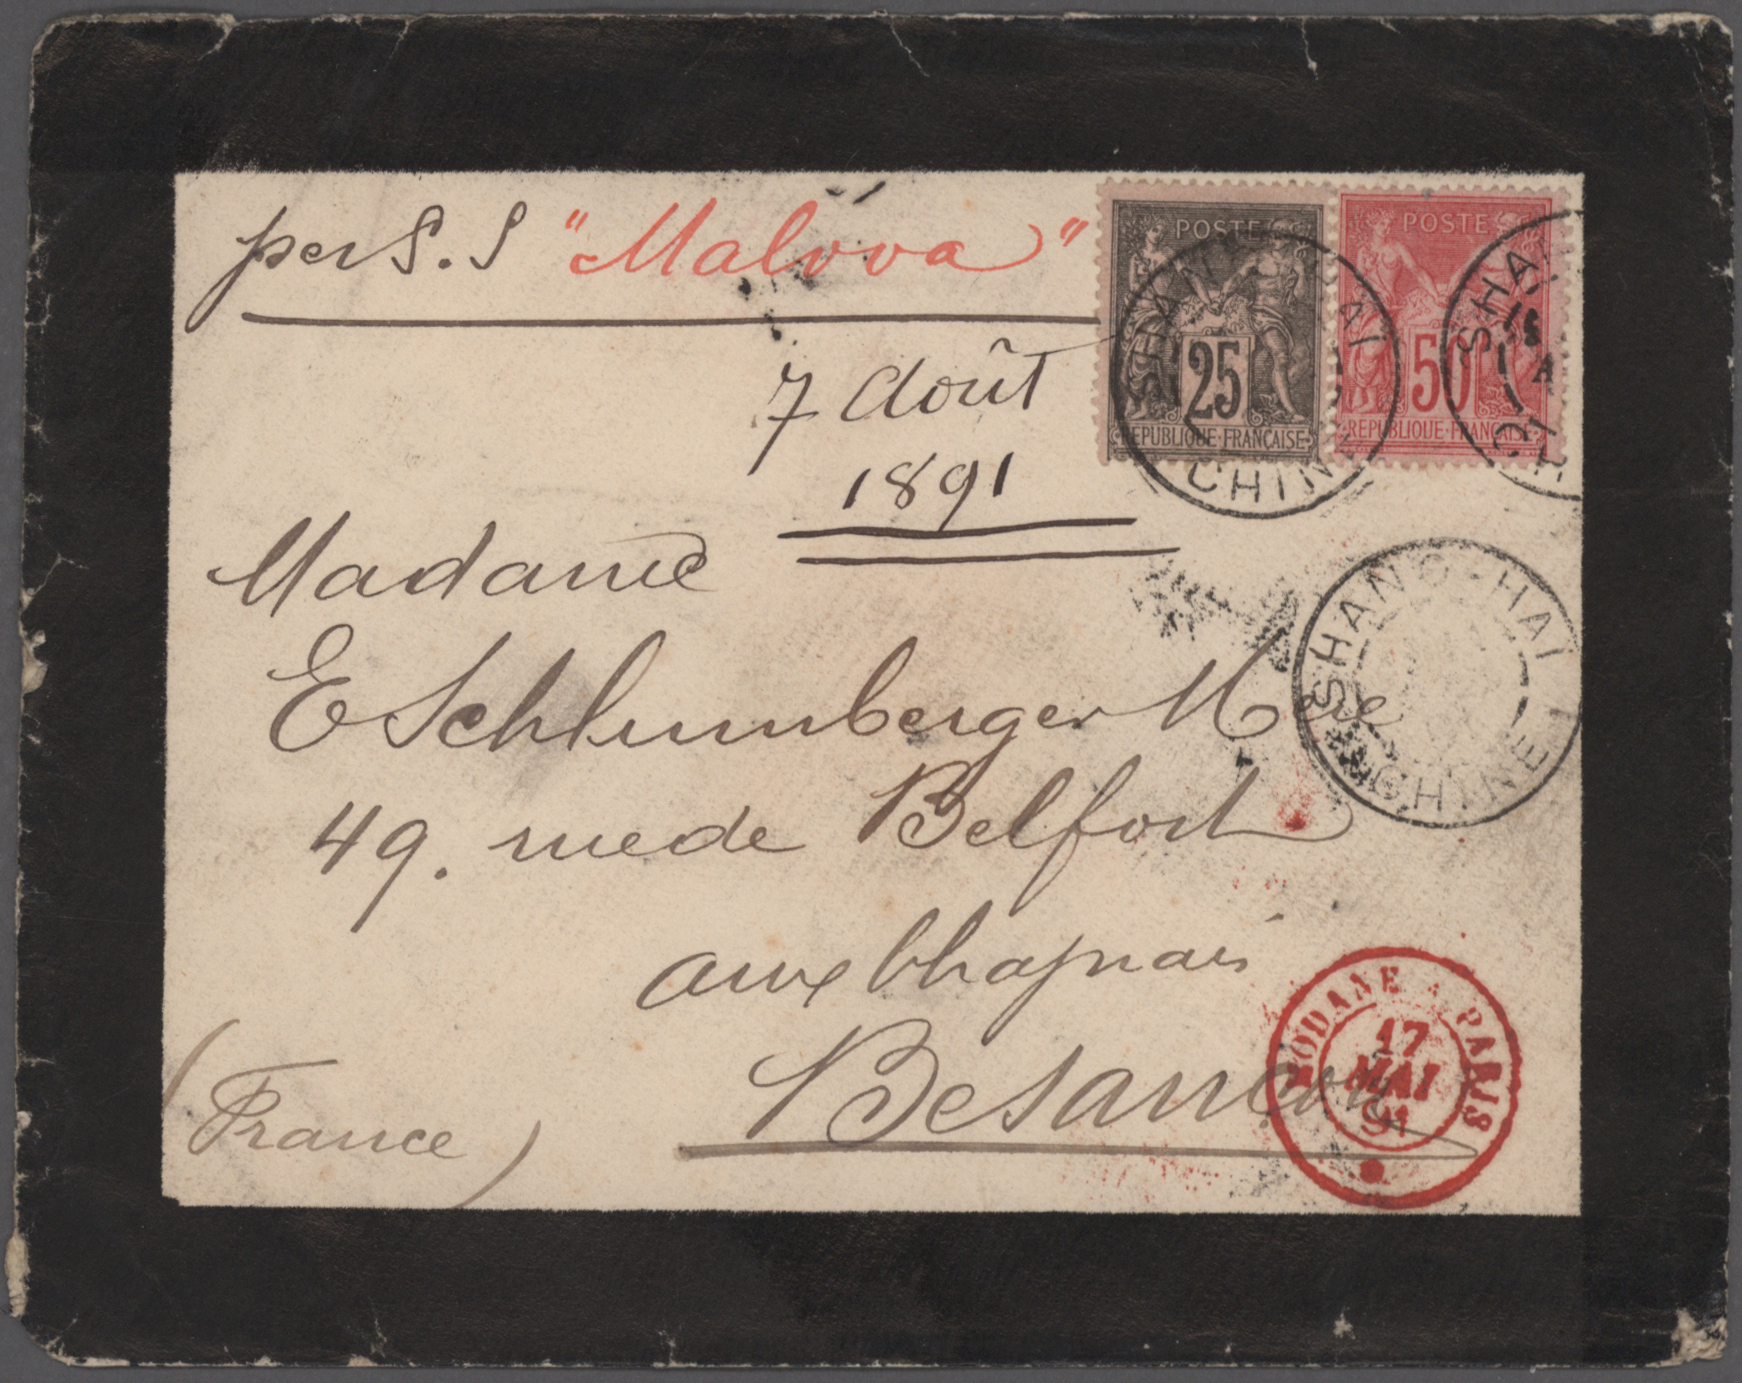 per S.S "Malova"
7 Août
1891
POSTE
25
REPUBLIQUE·FRANÇAISE
POSTE
50
REPUBLIQUE FRANÇAISE
CHINE
SHANG-HAI
CHINE
Madame
E Schlumberger Mère
49. rue de Belfort
aux Chaprais
Besançon
(France)
MODANE A PARIS
17
MAI
91